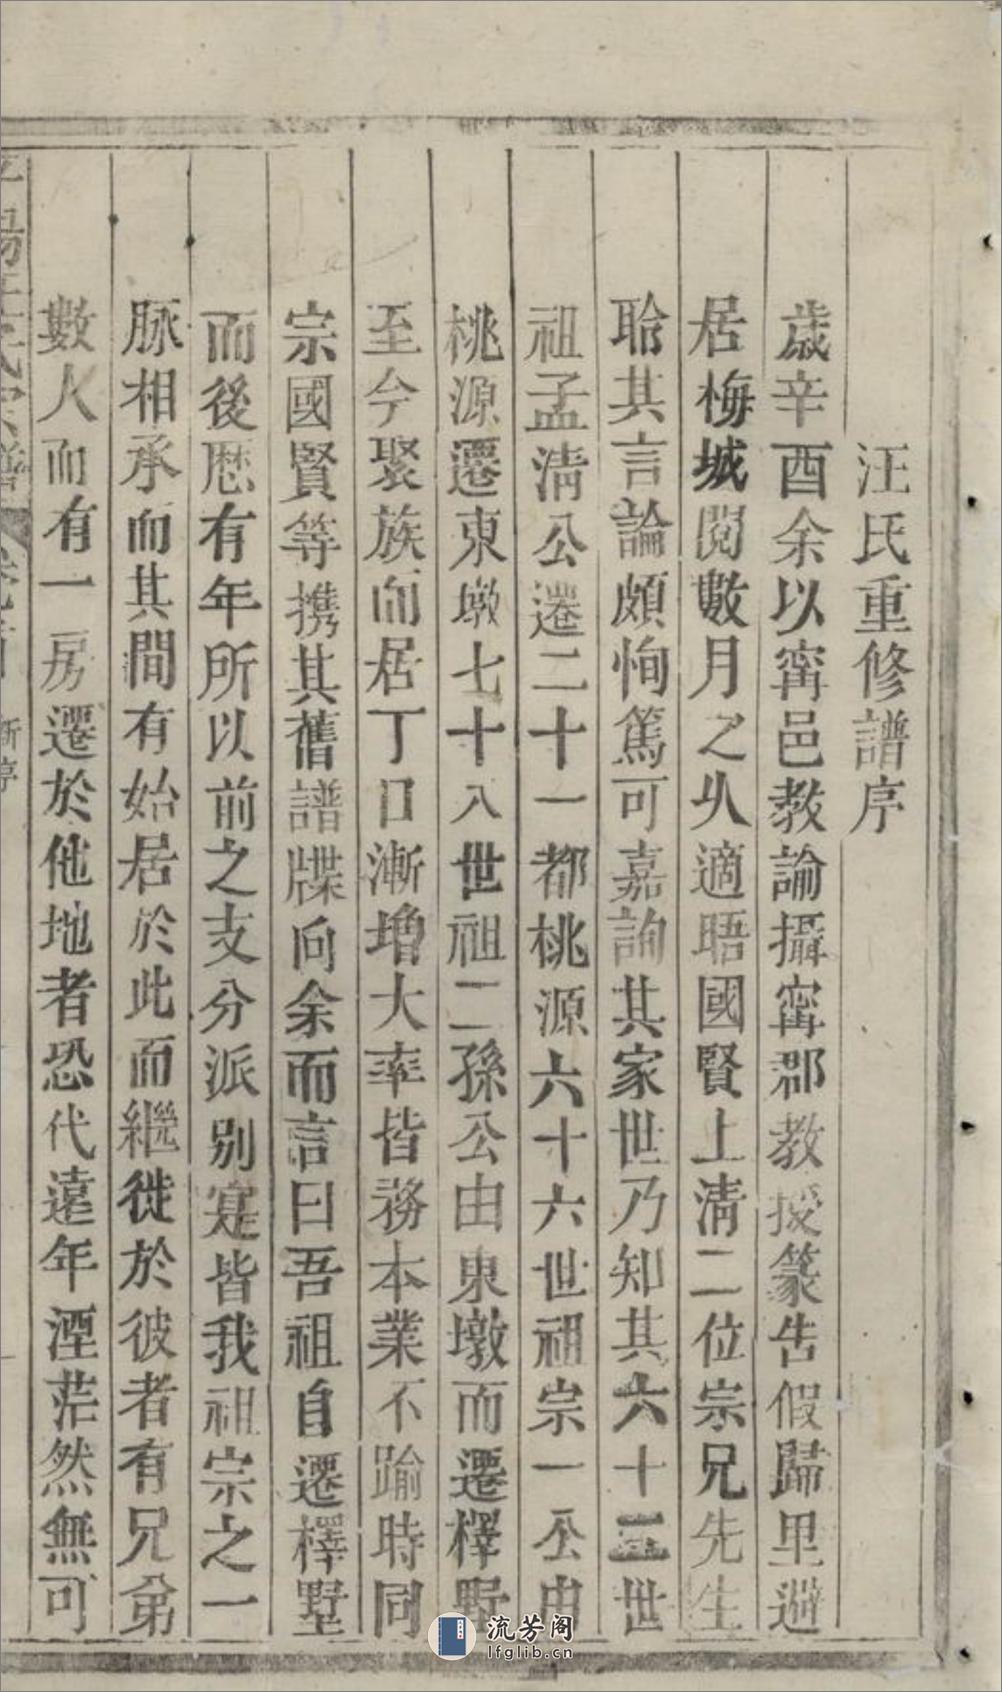 汪氏重修譜序
歲辛酉余以甯邑教諭攝甯郡教授篆告假歸里避
居梅城閱數月之久適晤國賢上清二位宗兄先生
聆其言論頗恂篤可嘉詢其家世乃知其六十三世
祖孟清公遷二十一都桃源六十六世祖宗一公由
桃源遷東墩七十八世祖二孫公由東墩而遷檡墅
至今聚族而居丁口漸增大率皆務本業不踰時同
宗國賢等携其舊譜牒向余而言曰吾祖自遷檡墅
而後歷有年所以前之支分派別寔皆我祖宗之一
脉相承而其間有始居於此而繼徙於彼者有兄弟
數人而有一房遷於他地者恐代遠年湮茫然無可
平陽汪氏宗譜 卷首 新序
流芳阁
lfglib.cn